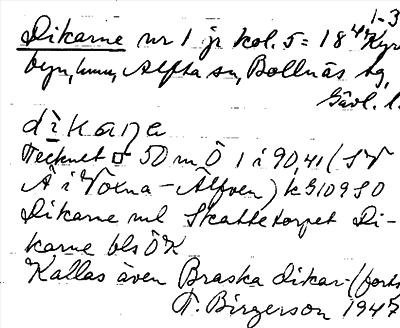 1-3
Dikarne nr 1 jr kol. 5 = 18 4/4 Kyrk
byn, Alfta sn, Bollnäs tg,
Gävl. l.
dikaṇa
Tecknet □ 50 m Ö 1 i 90,41 (SV
Å i Voxna-Älfven) k S109 SO
Dikarne vid Skattetorpet Di-
karne bls ÖK
Kallas även Braska dikar- (forts
T. Birgerson 1947